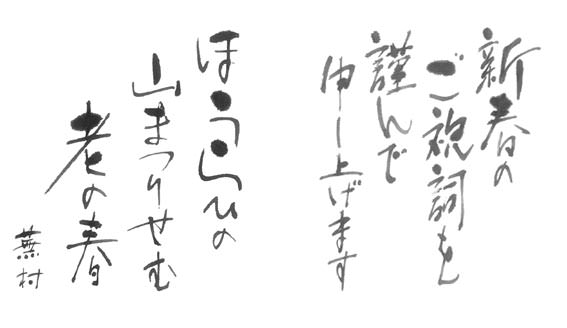 新春の
ご祝詞を
謹んで
申し上げます
ほうらひの
山まつりせむ
老の春
蕪村